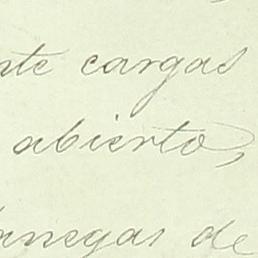 nte cargas
abierto,
fanegas de